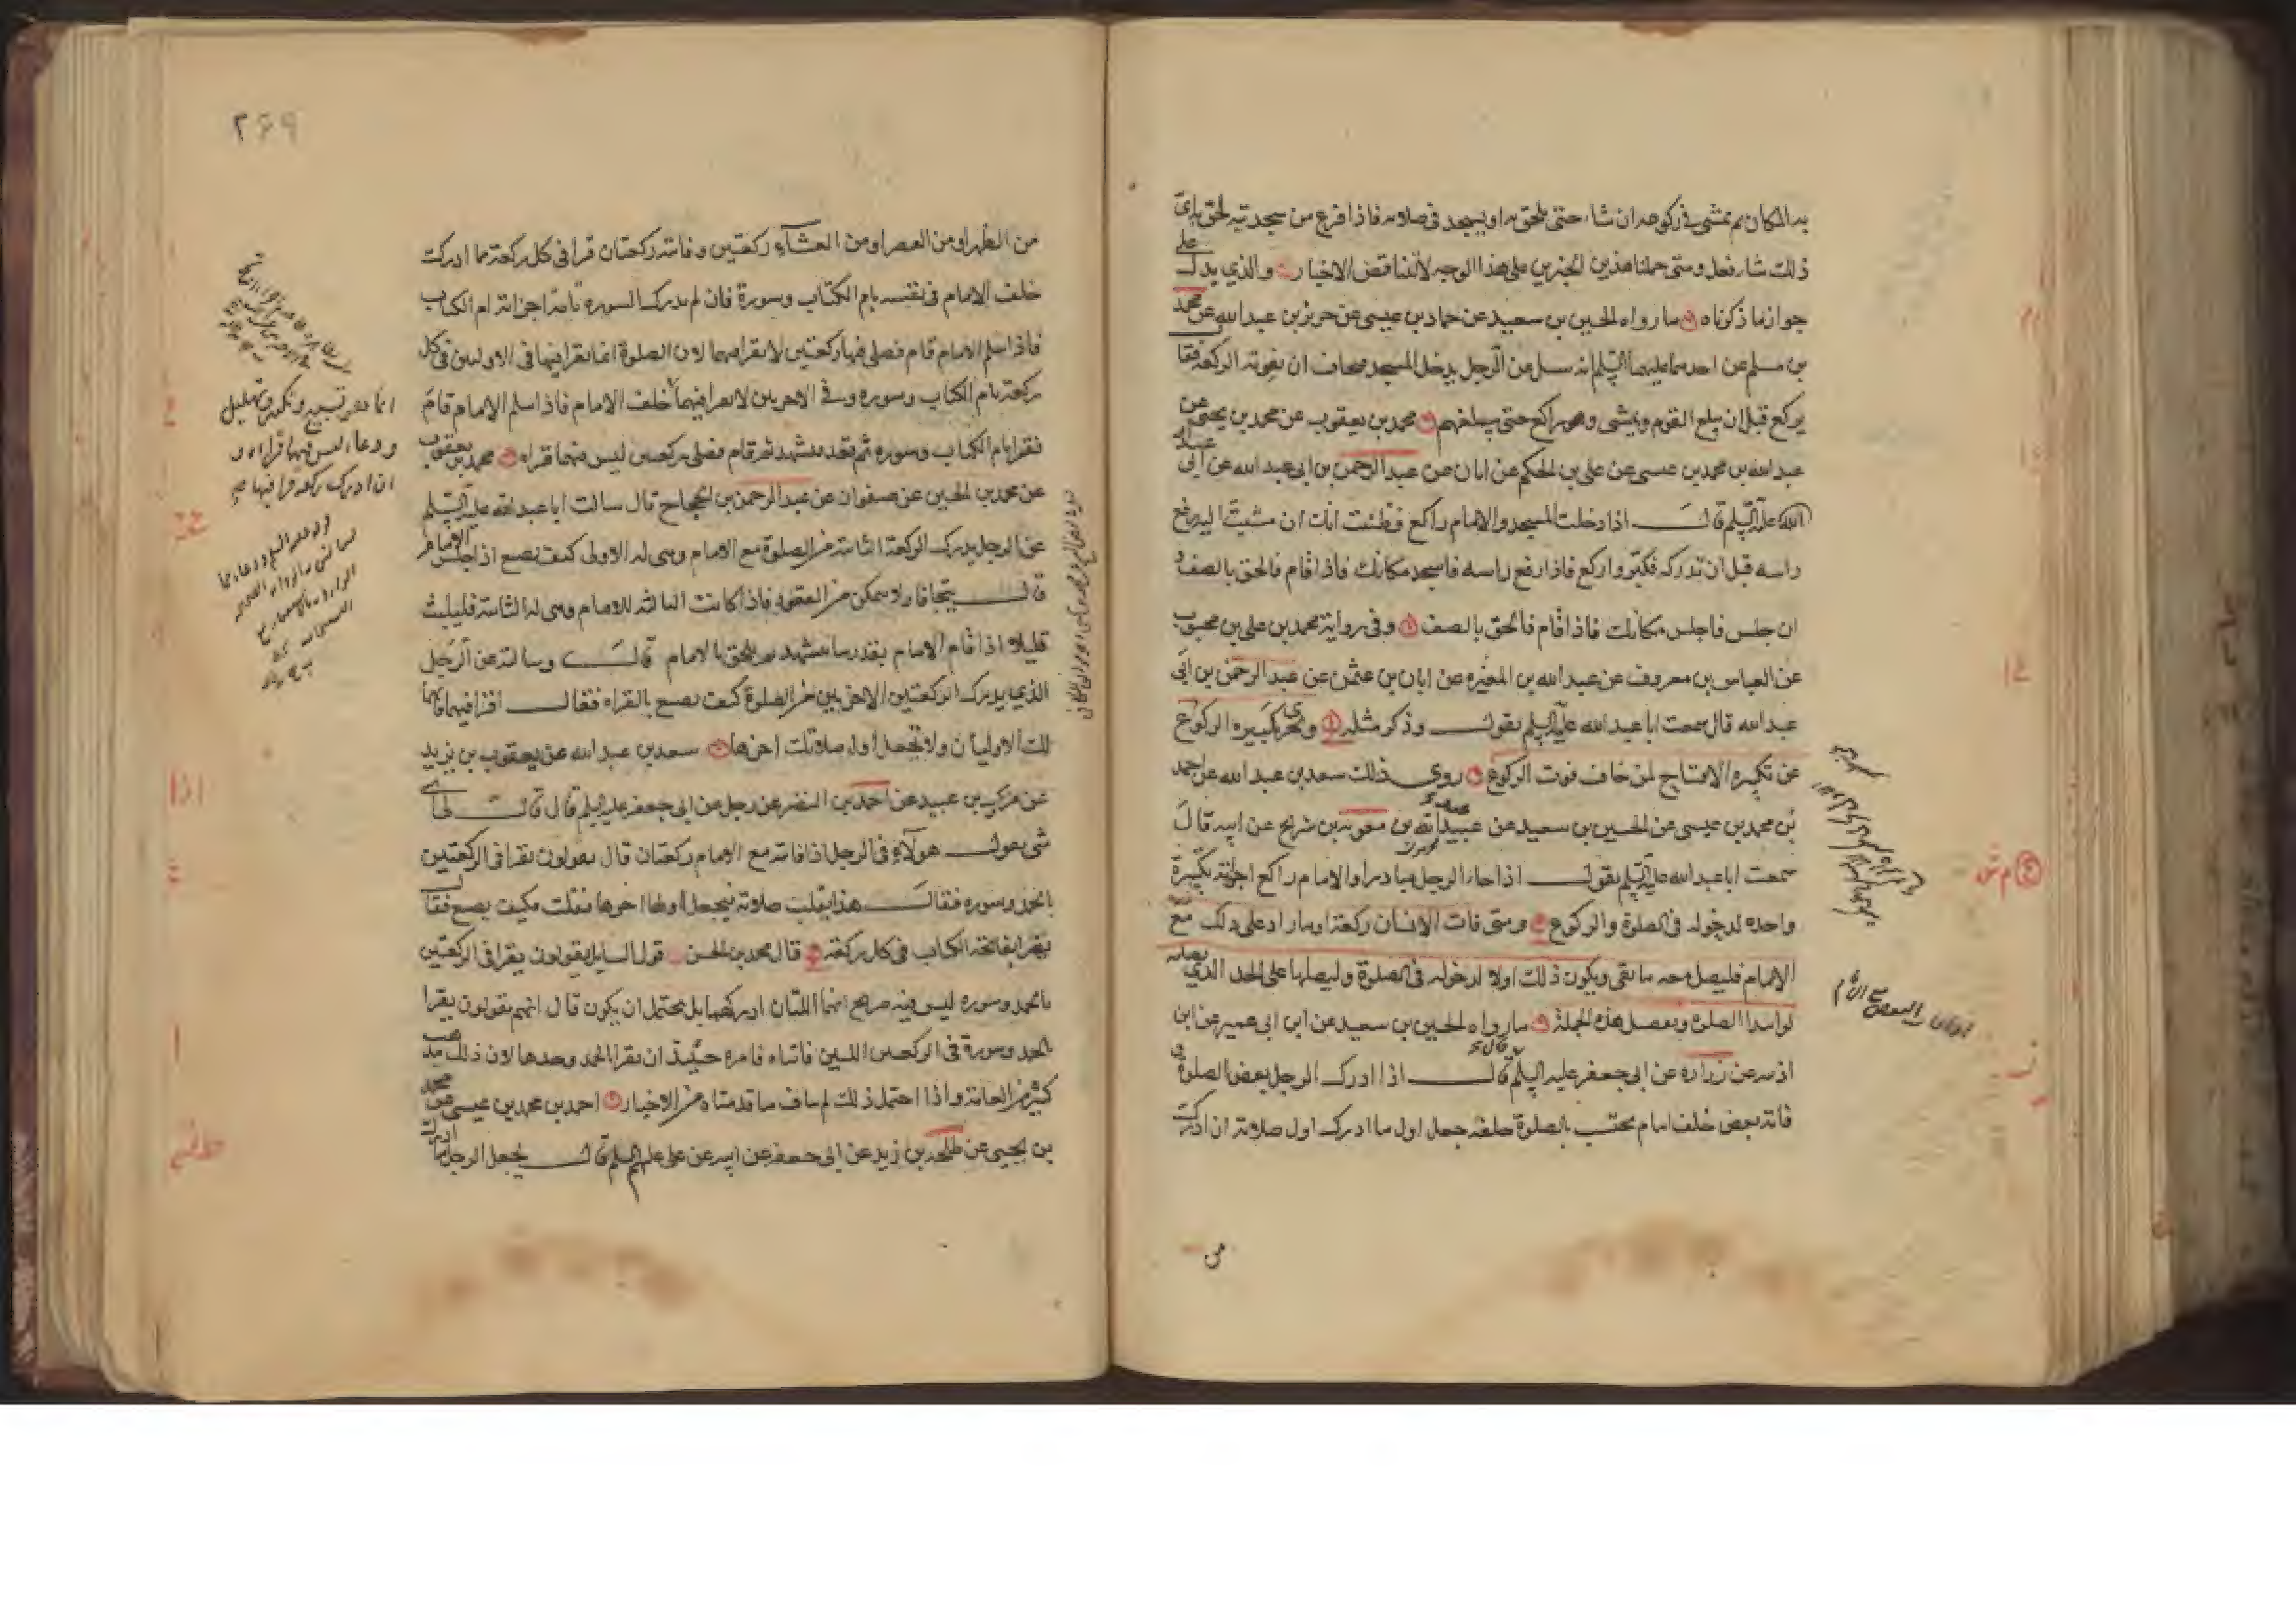 به المكان ثم يمشى فى ركوعه ان شاء حتى يلحق به او يسجد فى صلاته فاذا فرغ من سجدتيه لحق به اىّ
ذلك شاء فعل ومتى حملنا هذين الخبرين على هذا الوجه لا تتناقض الاخبار والذي يدل على
جواز ما ذكرناه ما رواه الحسين بن سعيد عن حماد بن عيسى عن حريز بن عبد الله عن محمد
بن مسلم عن احدهما عليهما السلم انه سئل عن الرجل يدخل المسجد فيخاف ان تفوته الركعة فقال
يركع قبل ان يبلغ القوم ويمشى وهو راكع حتى يبلغهم محمد بن يعقوب عن محمد بن يحيى عن
عبد الله بن محمد بن عيسى عن على بن الحكم عن ابان عن عبد الرحمن بن ابى عبد الله عن ابى عبد
الله عليه السلم قال اذا دخلت المسجد والامام راكع فظننت انك ان مشيت اليه رفع
راسه قبل ان تدركه فكبّر واركع فاذا رفع راسه فاسجد مكانك فاذا قام فالحق بالصف و
ان جلس فاجلس مكانك فاذا قام فالحق بالصف وفى رواية محمد بن على بن محبوب
عن العباس بن معروف عن عبد الله بن المغيره عن ابان بن عثمن عن عبد الرحمن بن ابى
عبد الله قال سمعت ابا عبد الله عليه السلم يقول وذكر مثله وتجزى تكبيره الركوع
عن تكبيره الافتتاح لمن خاف فوت الركوع روى ذلك سعد بن عبد الله عن احمد
بن محمد بن عيسى عن الحسين بن سعيد عن عبيد الله بن معويه بن شريح عن ابيه قال
سمعت ابا عبد الله عليه السلم يقول اذا جاء الرجل مبادرا والامام راكع اجزاته تكبيرة
واحده لدخوله فى الصلوة والركوع ومتى فات الانسان ركعة او ما زاد على ذلك مع
الامام فليصل معه ما بقى ويكون ذلك اولا لدخوله فى الصلوة وليصلها على الحد الذي يصليه
لو ابتدا الصلوة وتفصل هذه الجملة ما رواه الحسين بن سعيد عن ابن ابى عمير عن ابن
اذينه عن زراره عن ابى جعفر عليه السلم قال اذا ادرك الرجل بعض الصلوة و
فاته بعض خلف امام يحتسب بالصلوة خلفه جعل اول ما ادرك اول صلاته ان ادرك
من
۲۶۹
من الظهر او من العصر او من العشاء ركعتين وفاتته ركعتان قرا فى كل ركعة مما ادرك
خلف الامام فى نفسه بام الكتاب وسورة فان لم يدرك السوره تامة اجزاته ام الكتاب
فاذا سلم الامام قام فصلى فيها ركعتين لا يقرا فيهما لان الصلوة انما يقرا فيها فى الاولين فى كل
ركعة بام الكتاب وسوره وفى الاخريين لا يقرا فيهما خلف الامام فاذا سلم الامام قام
فقرا بام الكتاب وسوره ثم قعد فتشهد ثم قام فصلى ركعتين ليس فيهما قراه محمد بن يعقوب
عن محمد بن الحسين عن صفوان عن عبد الرحمن بن الحجاج قال سالت ابا عبد الله عليه السلم
عن الرجل يدرك الركعة الثانية من الصلوة مع الامام وهى له الاولى كيف يصنع اذا جلس الامام
قال يتجافا ولا يتمكن من القعود فاذا كانت الثالثه للامام وهى له الثانية فليلبث
قليلا اذا قام الامام بقدر ما يتشهد ثم يلحق بالامام قال وسالته عن الرجل
الذي يدرك الركعتين الاخريين من الصلوة كيف يصنع بالقراه فقال اقرا فيهما فانهما
لك الاوليان ولا تجعل اول صلاتك اخرها سعد بن عبد الله عن يعقوب بن يزيد
عن مروك بن عبيد عن احمد بن النضر عن رجل عن ابى جعفر عليه السلم قال قال لى اى
شى يقول هولاء فى الرجل اذا فاته مع الامام ركعتان قال يقولون يقرا فى الركعتين
بالحمد وسوره فقال هذا يقلب صلاته فيجعل اولها اخرها فقلت فكيف يصنع فقال
يقرا بفاتحة الكتاب فى كل ركعة قال محمد بن الحسن قول السايل يقولون يقرا فى الركعتين
بالحمد وسوره ليس فيه صريح انهما اللتان ادركهما بل يحتمل ان يكون قال انهم يقولون يقرا
بالحمد وسورة فى الركعتين اللتين فاتتاه فامره حينئذ ان يقرا بالحمد وحدها لان ذلك مذهب
كثير من العامة واذا احتمل ذلك لم يناف ما قدمناه من الاخبار احمد بن محمد بن عيسى عن محمد
بن يحيى عن طلحه بن زيد عن ابى جعفر عن ابيه عن على عليهم السلم قال يجعل الرجل ما ادرك
انما هو تسبيح وتكبير وتهليل
ودعاء ليس فيها قراءه و
ان ادرك ركعة قرا فيها